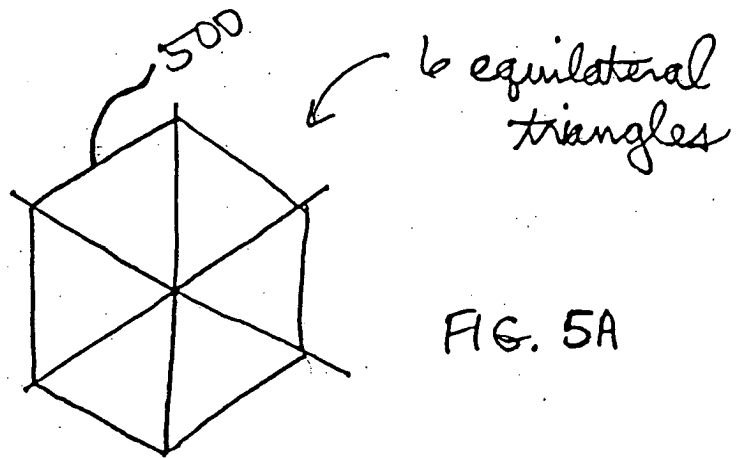 500
6 equilateral
triangles
FIG. 5A